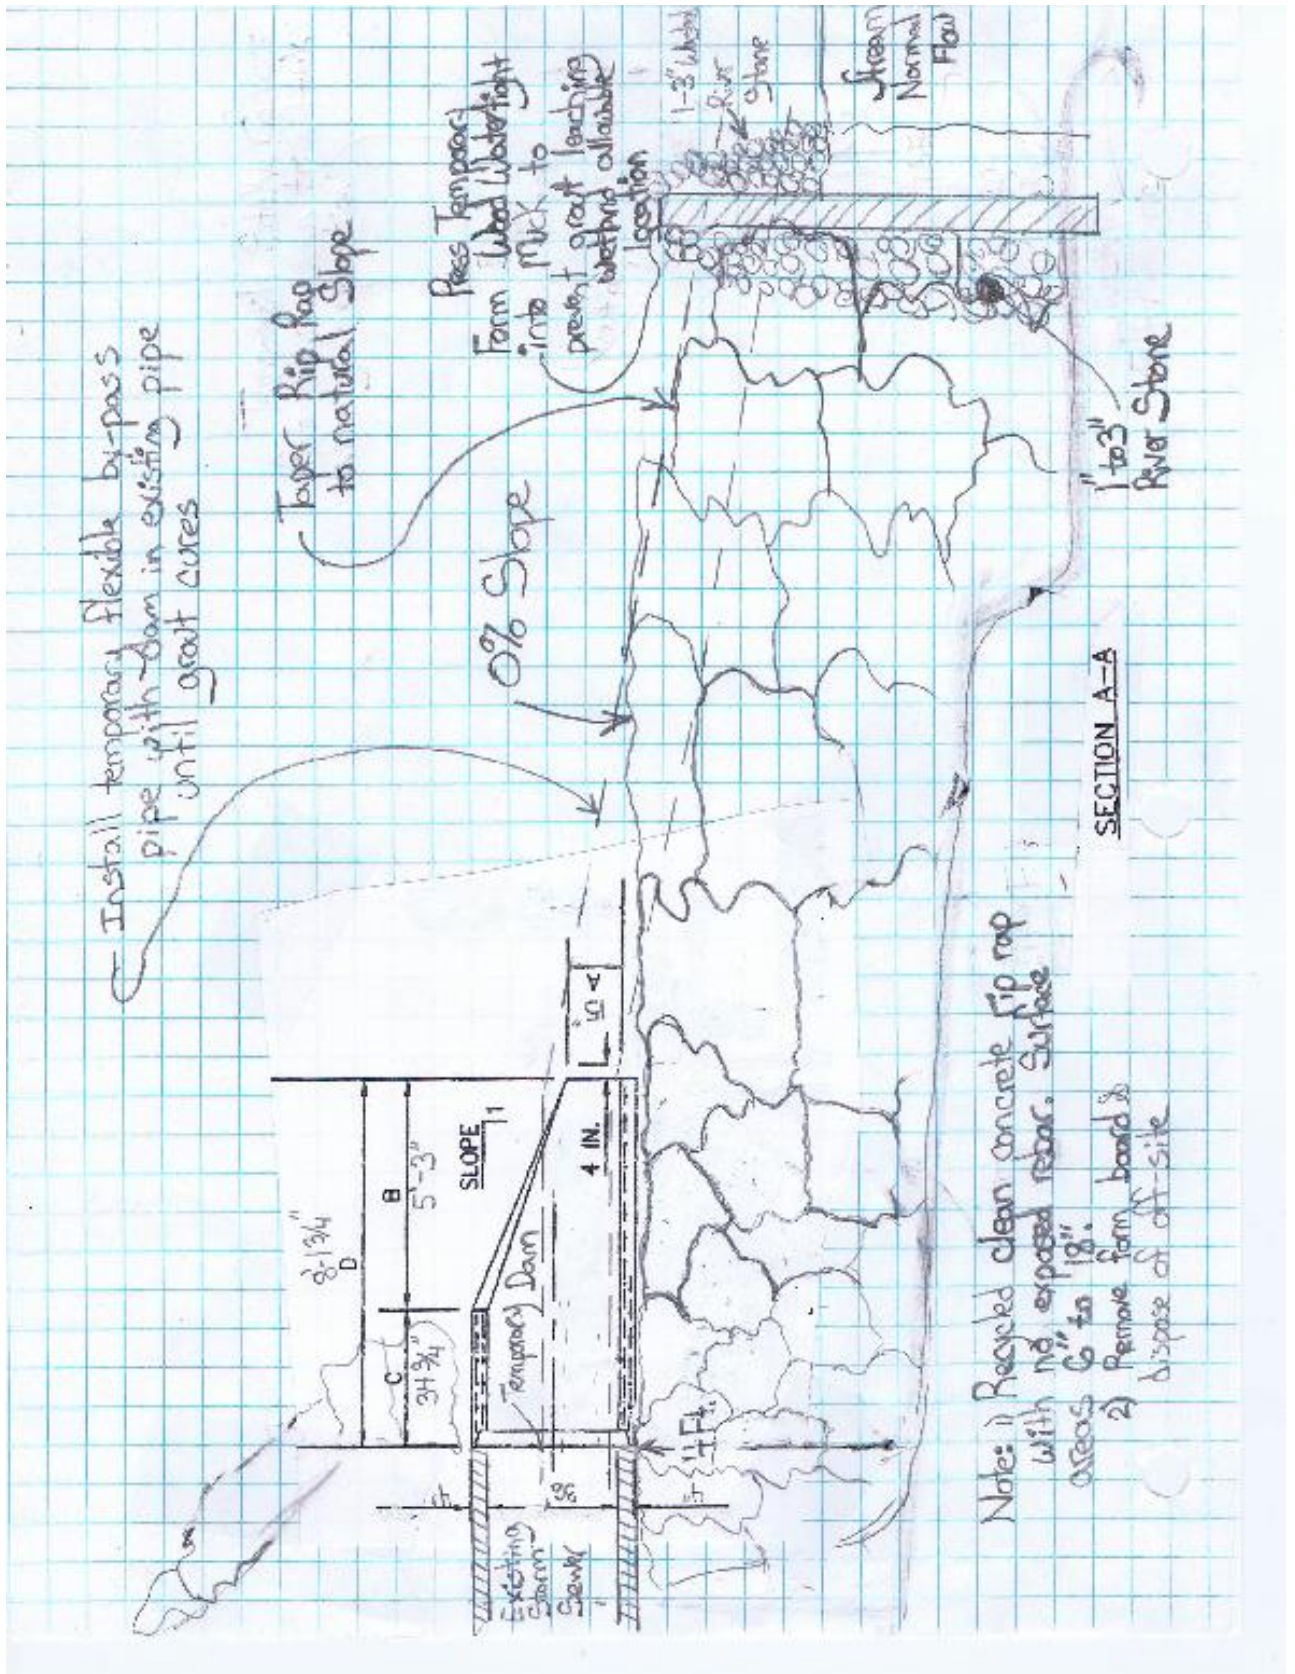 Install temporary flexible by-pass
pipe with dam in existing pipe
until grout cures
Taper Rip Rap
to natural Slope
Press Temporary
Form Wood Watertight
into Muck to
prevent grout leaching
wetland allowable
location
1-3" Washed
River
Stone
Stream
Normal
Flow
0% Slope
8'-1 3/4"
D
C
34 3/4"
B
5'-3"
SLOPE
1
Temporary Dam
4 IN.
5"
A
Existing
Storm
Sewer
4"
4"
4 Ft.
1" to 3"
River Stone
SECTION A-A
Note: 1) Recycled clean concrete rip rap
with no exposed rebar. Surface
areas 6" to 18".
2) Remove form board &
dispose of off-site